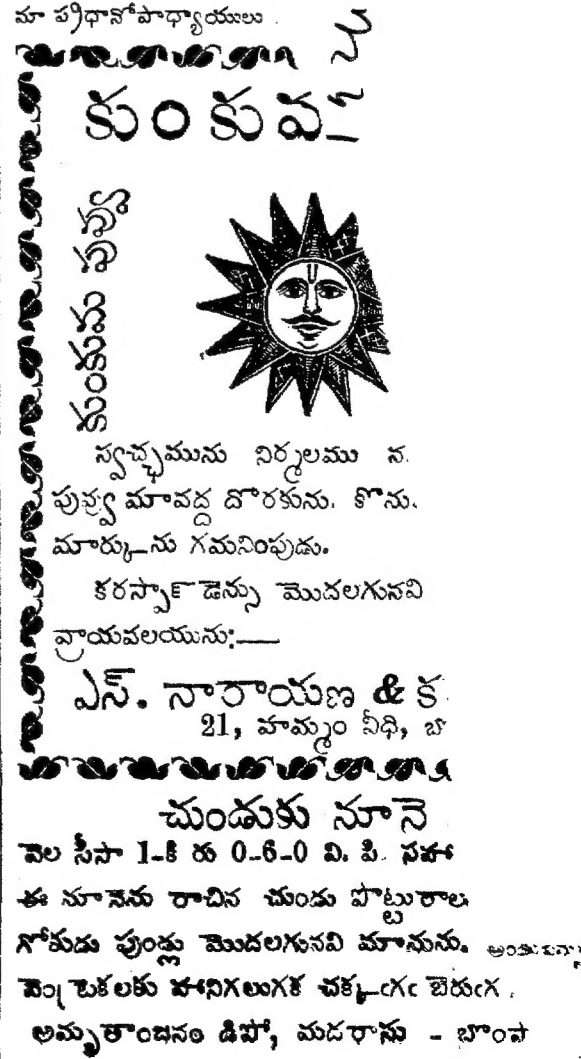 మా ప్రిధానోపాధ్యాయులు
కుంకువ
కుంకుమ పువ్వు
స్వచ్ఛమును నిర్మలము
పువ్వు మావద్ద దొరకును. కొను.
మార్కును గమనింపుడు.
కరస్పాండెన్సు మొదలగునవి
వ్రాయవలయును:—
ఎస్. నారాయణ & క
21, హమ్మం వీధి, బా
చుండుకు నూనె
వెల సీసా 1-కి రు 0-6-0 వి. పి. సహా
ఈ నూనెను రాచిన చుండు పొట్టురాల
గోకుడు పుండ్లు మొదలగునవి మానును.
వెంట్రుకలకు హానిగలుగక చక్కఁగఁ బెరుఁగ
అమృతాంజనం డిపో, మదరాసు - బొంబా